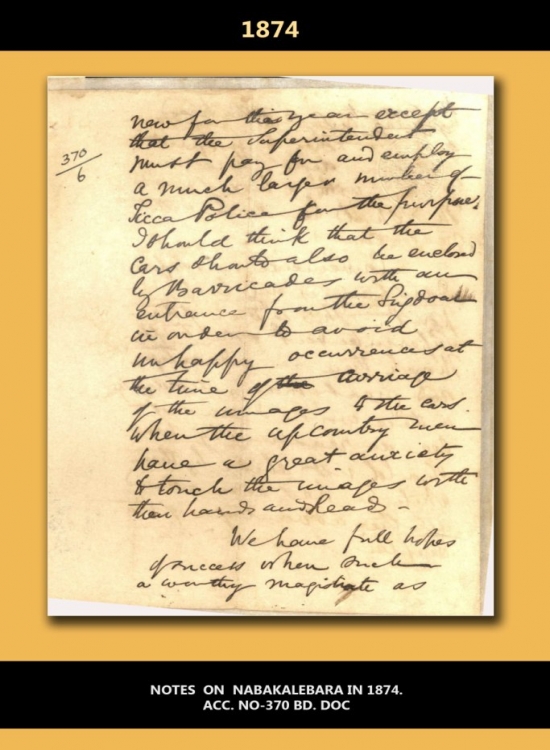 1874
370
6
new for this year except
that the Superintendent
must pay for and employ
a much larger number of
Ticca Police for the purpose.
I should think that the
Cars should also be enclosed
by Barricades with an
entrance from the Singdoar
in order to avoid
unhappy occurrences at
the time of the carriage
of the images to the cars.
When the upcountry men
have a great anxiety
to touch the images with
their hands and head -
We have full hopes
of success when such
a worthy magistrate as
NOTES ON NABAKALEBARA IN 1874.
ACC. NO-370 BD. DOC